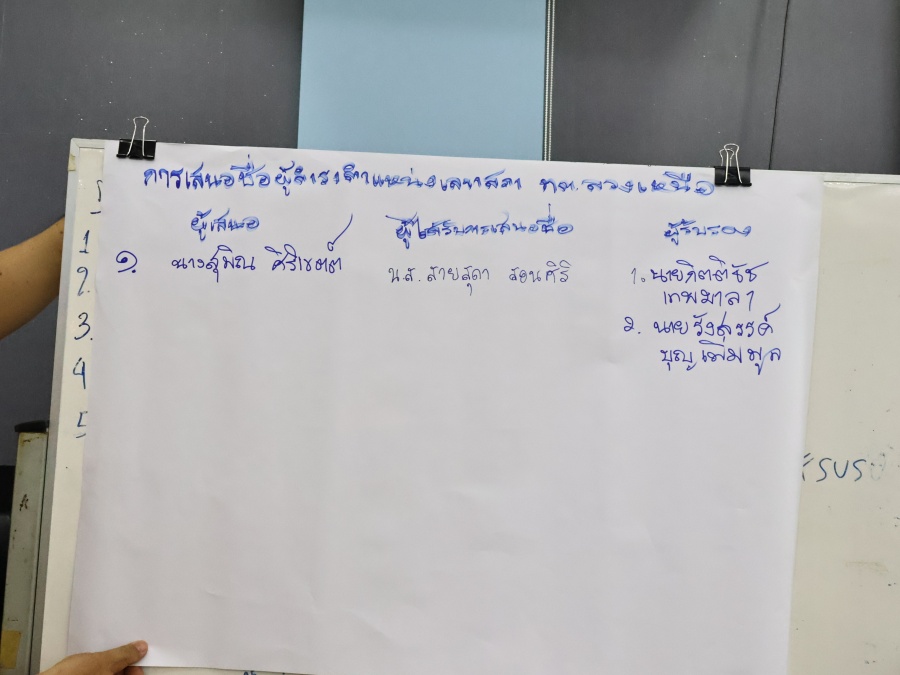 การเสนอชื่อผู้ดำรงตำแหน่งเลขาสภา ทต.ลวงเหนือ
ผู้เสนอ ผู้ได้รับการเสนอชื่อ ผู้รับรอง
๑. นางสุมิณ น.ส. สายสุดา 1. นายกิตติธัช
เทพมาลา
2. นายรังสรรค์
บุญเพิ่มพูล
1
2.
3.
4
5